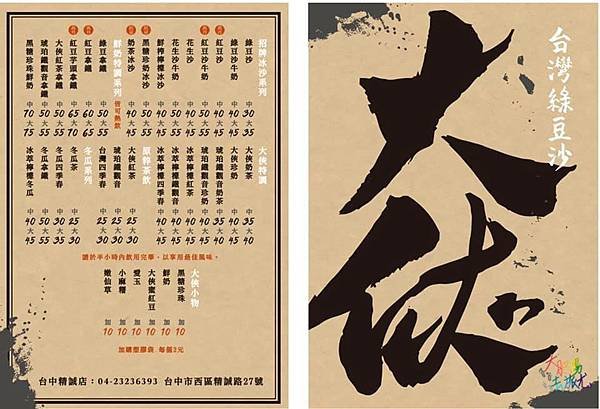 台灣綠豆沙
大俠
招牌冰沙系列
綠豆沙 中30 大35
綠豆沙牛奶 中40 大45
紅豆沙 中40 大45
紅豆沙牛奶 中50 大55
花生沙 中40 大45
花生沙牛奶 中50 大55
鮮奶檸檬冰沙 中40 大45
黑糖珍奶冰沙 中50 大55
奶茶冰沙 中40 大45
鮮奶特調系列
皆可熱飲
綠豆拿鐵 中50 大55
紅豆拿鐵 中60 大65
紅豆芋頭拿鐵 中65 大70
大俠紅茶拿鐵 中50 大55
琥珀鐵觀音拿鐵 中50 大55
黑糖珍珠鮮奶 中70 大75
大俠特調
大俠奶茶 中35 大40
大俠珍奶 中40 大45
琥珀鐵觀音奶茶 中35 大40
琥珀鐵觀音珍奶 中40 大45
冰萃檸檬紅茶 中40 大45
冰萃檸檬鐵觀音 中40 大45
冰萃檸檬四季春 中40 大45
原粹茶飲
大俠紅茶 中25 大30
琥珀鐵觀音 中25 大30
台灣四季春 中25 大30
冬瓜系列
冬瓜茶 中25 大30
冬瓜紅茶 中30 大35
冬瓜四季春 中30 大35
冬瓜拿鐵 中50 大55
冰萃檸檬冬瓜 中40 大45
請於半小時內飲用完畢，以享用最佳風味。
大俠小物
黑糖珍珠 加10
鮮奶 加10
大俠蜜紅豆 加10
愛玉 加10
小麻糬 加10
嫩仙草 加10
加購塑膠袋 每個2元
台中精誠店：04-23236393 台中市西區精誠路27號